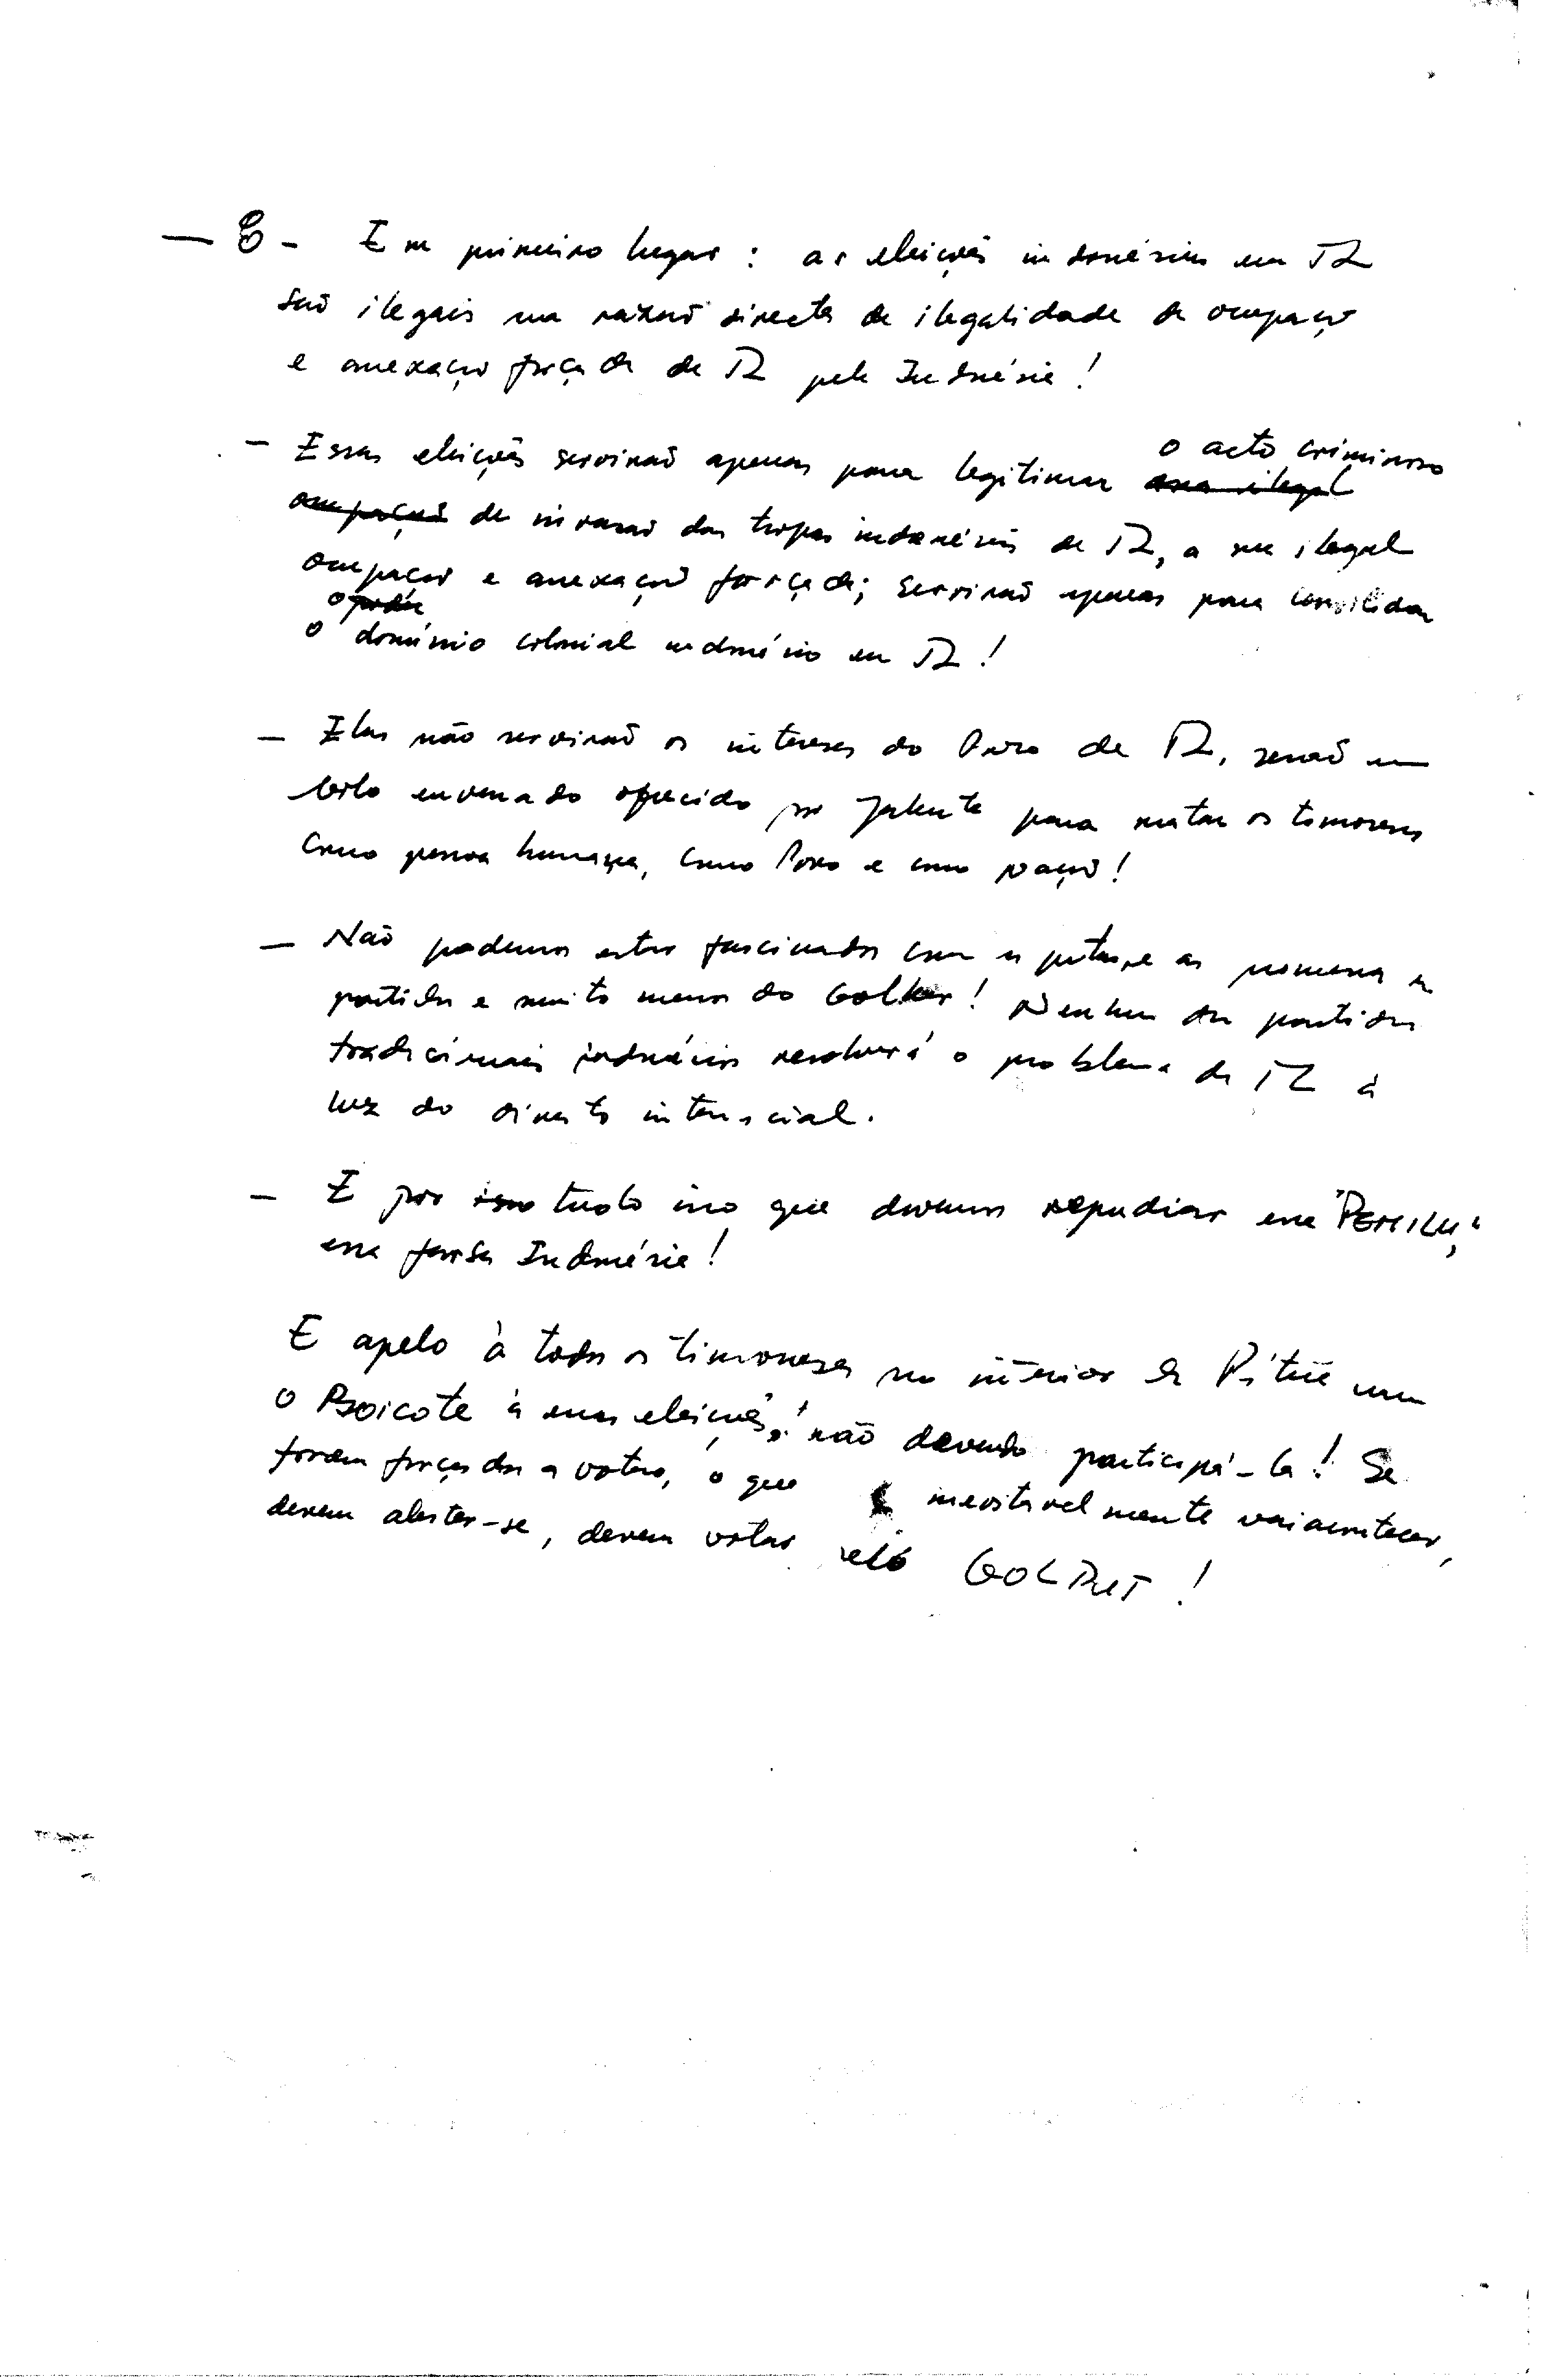 — 6 - Em primeiro lugar : as eleições indonésias em TL
são ilegais na razão directa da ilegalidade da ocupação
e anexação forçada de TL pela Indonésia !
- Essas eleições servirão apenas para legitimar o acto criminoso
de invasão das tropas indonésias de TL, a sua ilegal
ocupação e anexação forçada; servirão apenas para consolidar
o domínio colonial indonésio em TL !
- Elas não servirão os interesses do Povo de TL, serão um
bolo envenenado oferecido por Jakarta para matar os timorenses
como pessoa humana, como Povo e como Nação !
- Não podemos estar fascinados com as promessas
partidos e muito menos do Golkar ! Nenhum dos partidos
tradicionais indonésios resolverá o problema de TL à
luz do direito internacional.
- E por tudo isso que devemos repudiar esse "PEMILU,"
essa farsa Indonésia !
E apelo à todos os timorenses no interior da Pátria
o Boicote à essas eleições ! não devendo participá-la ! Se
forem forçados a votar, o que inevitavelmente vai acontecer,
devem abster-se, devem votar pelo GOLPUT !